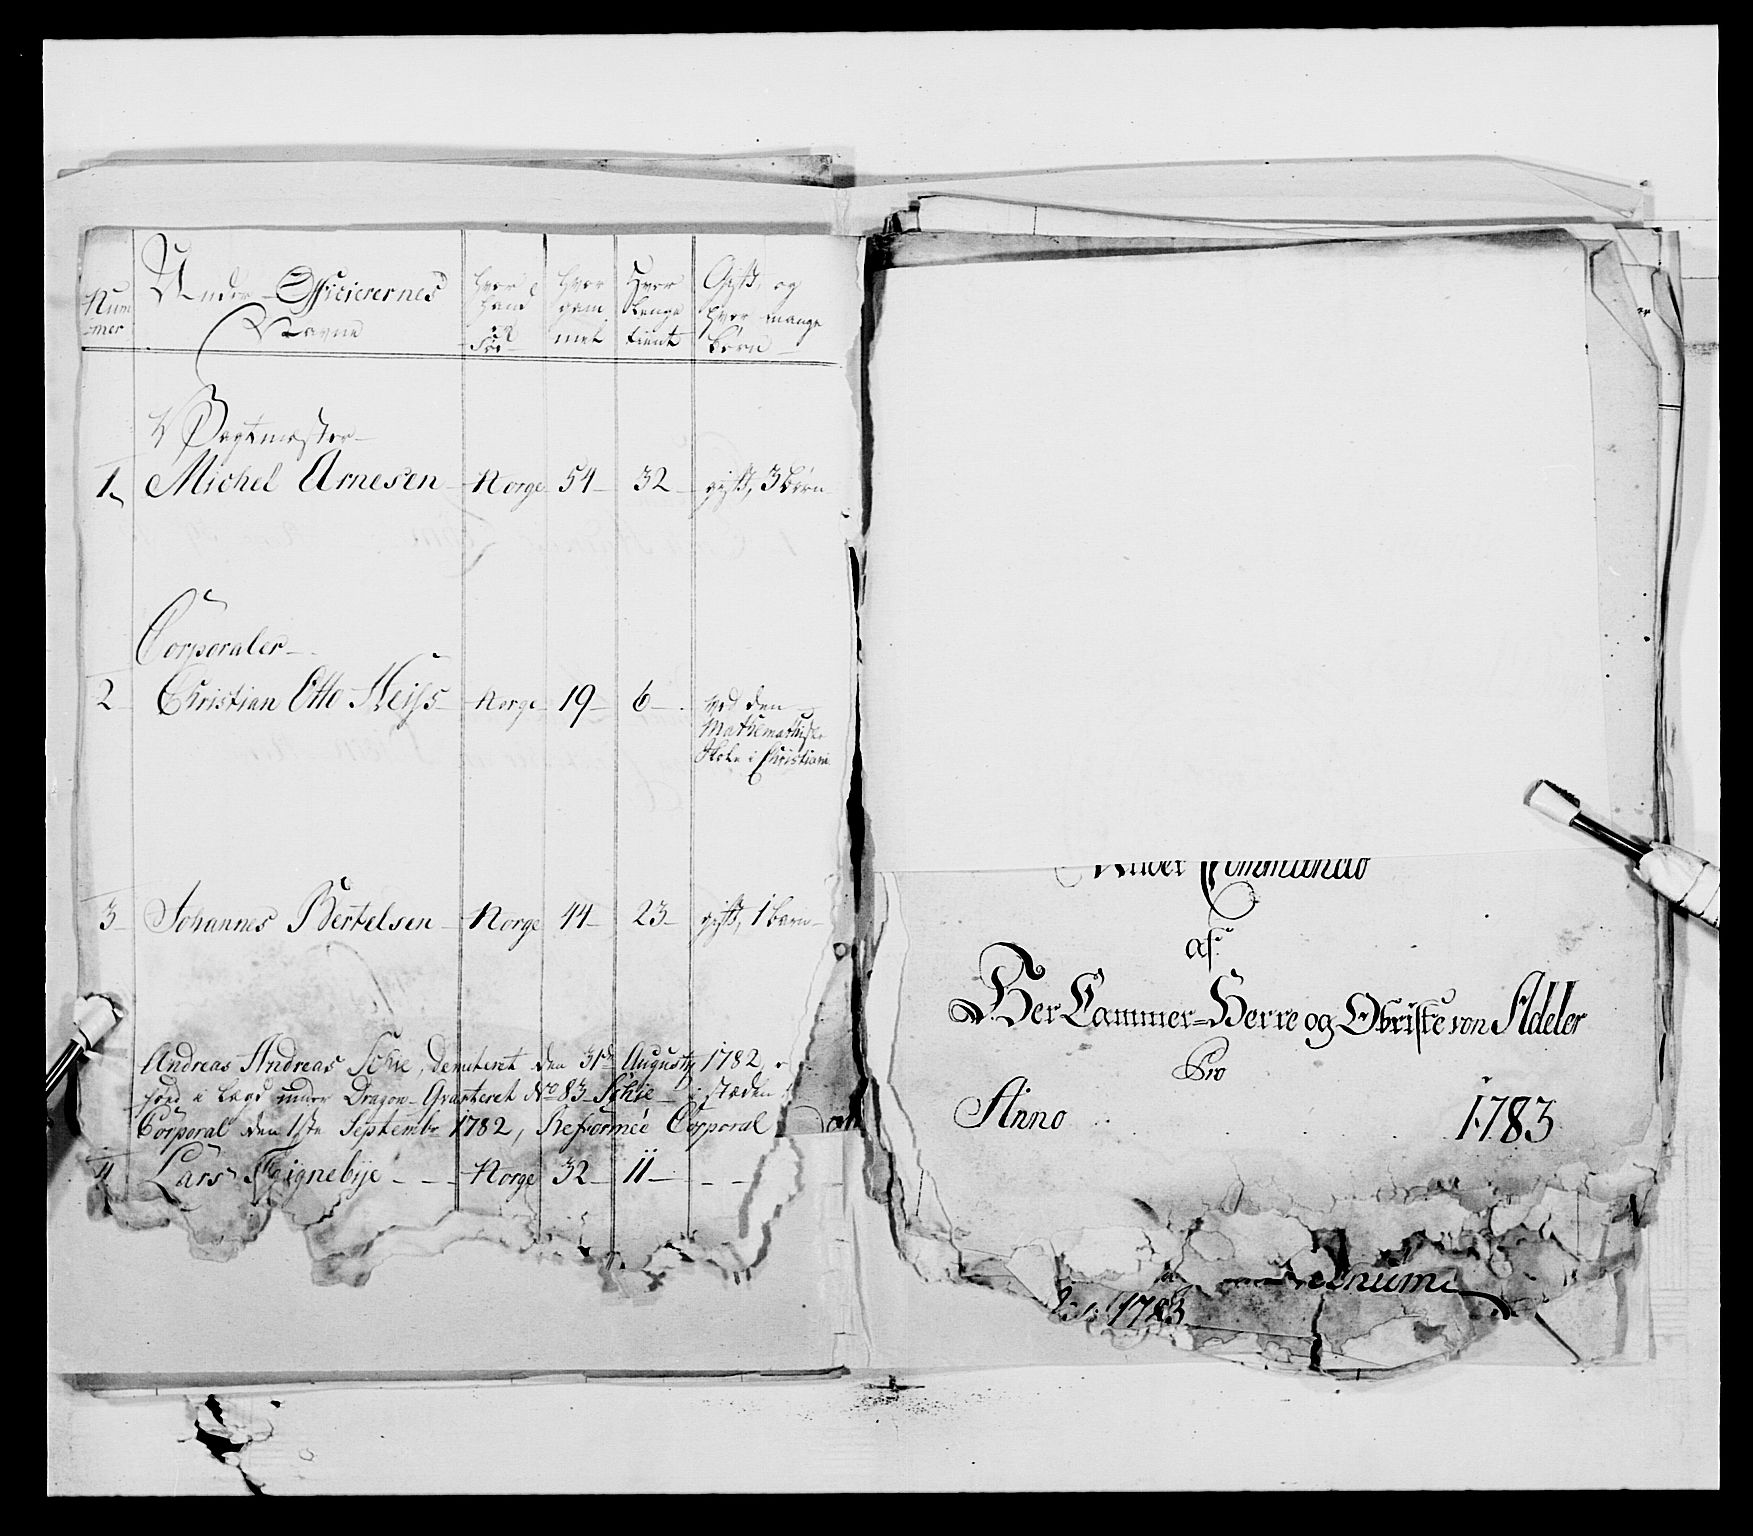 Num
mer
Under Officierernes
Navne
Hvor
hand
er
Fød
Hvor
gam
mel
Hvor
Lenge
tient
Gift, og
hvor mange
børn
Vagtmester
1. Michel Arnesen Norge 54 32 gift, 3 børn
Corporaler
2 Christian Otto Norge 19 6 ved den
Mathematiske
Skole i Christiani
3 Johannes Bertelsen Norge 44 23 gift, 1 barn
Andreas Andreas Schie, demiteret den 31de Augusty 1782,
Lægd under Dragon-Qvarteret No 83 Schie i stæden
Corporal den 1ste Septembr 1782, Reformeé Corporal
4 Lars Norge 32 11
Under Commando
af
Her Cammer=Herre og Obriste von Adeler
Pro
Anno 1783
1783